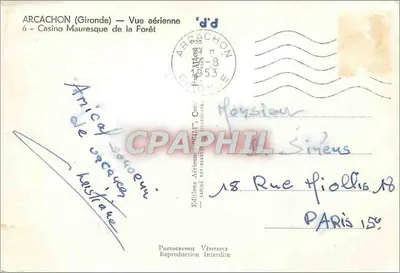 ARCACHON (Gironde) — Vue aérienne
6 - Casino Mauresque de la Forêt
P.P.
ARCACHON
-8
1953
GIRONDE
Amical souvenir
de vacances
Christiane
Monsieur
Sirens
18 Rue Miollis 18
PARIS 15e
CPAPHIL
Photographie Véritable
Reproduction Interdite